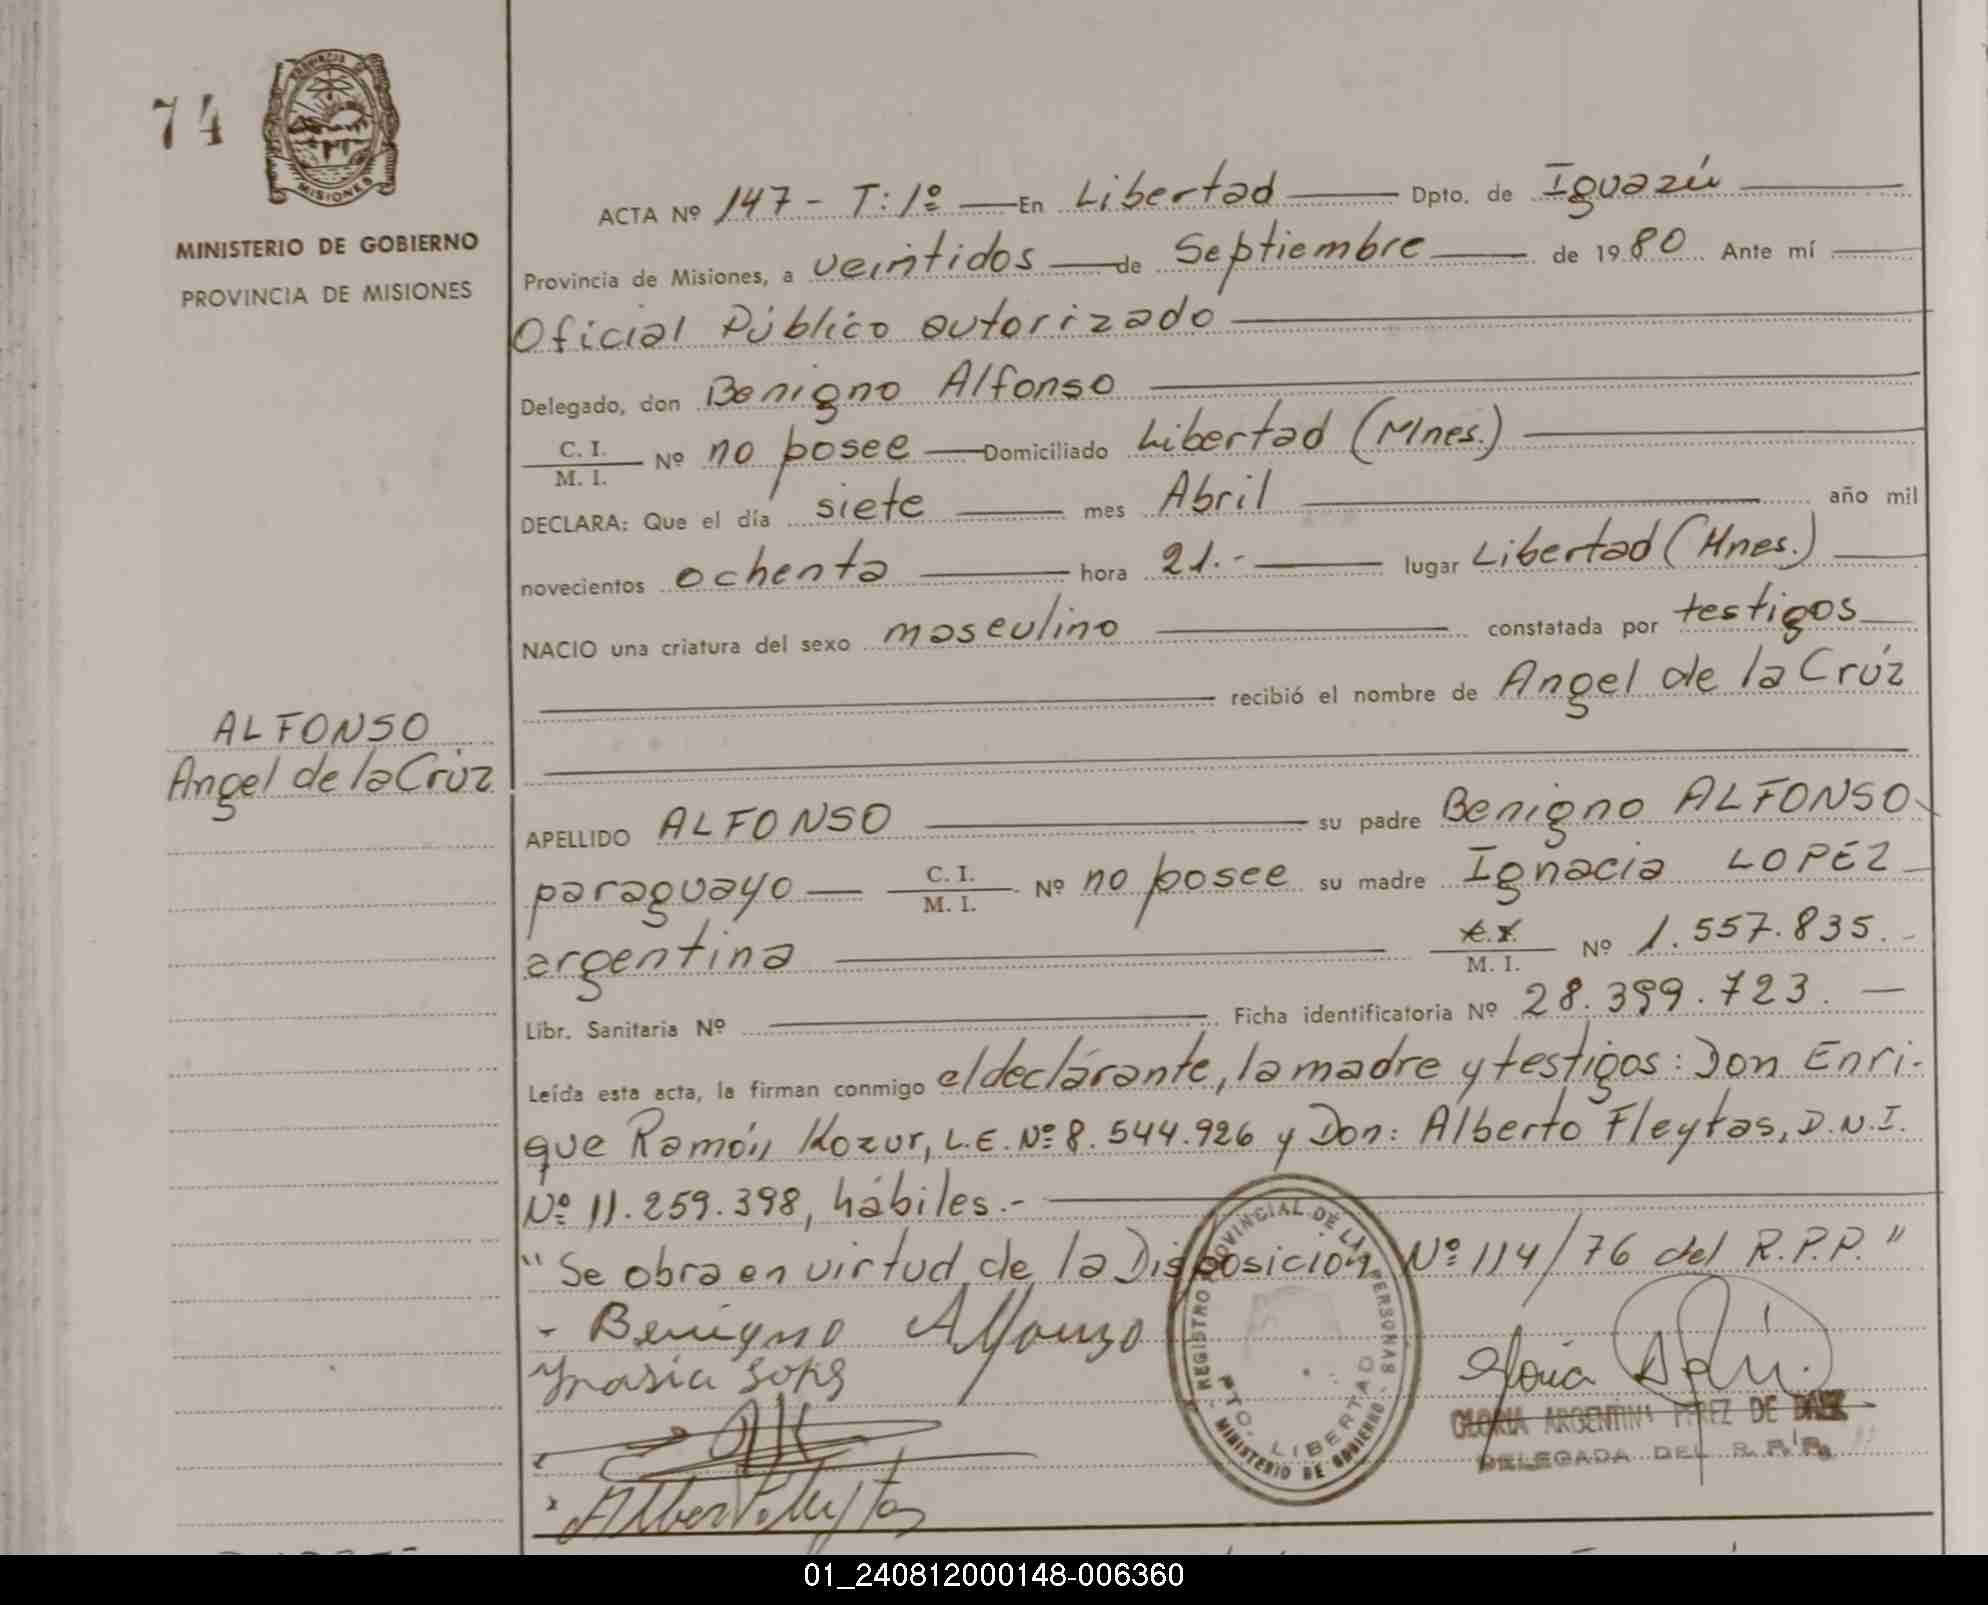 74
PROVINCIA DE
MISIONES
MINISTERIO DE GOBIERNO
PROVINCIA DE MISIONES
ALFONSO
Angel de la Crúz
ACTA Nº 147 - T: 1º — En Libertad — Dpto. de Iguazú —
Provincia de Misiones, a veintidos — de Septiembre — de 1980 Ante mí —
Oficial Público autorizado —
Delegado, don Benigno Alfonso —
C. I.
M. I. Nº no posee — Domiciliado Libertad (Mnes.) —
DECLARA: Que el día siete — mes Abril — año mil
novecientos ochenta — hora 21.- — lugar Libertad (Mnes.) —
NACIO una criatura del sexo masculino — constatada por testigos —
— recibió el nombre de Angel de la Crúz
APELLIDO ALFONSO — su padre Benigno ALFONSO
paraguayo — C. I. M. I. Nº no posee su madre Ignacia LOPEZ
argentina — M. I. Nº 1.557.835.-
Libr. Sanitaria Nº — Ficha identificatoria Nº 28.399.723. —
Leída esta acta, la firman conmigo el declarante, la madre y testigos: Don Enri-
que Ramón Kozur, L.E. Nº 8.544.926 y Don: Alberto Fleytas, D.N.I.
Nº 11.259.398, hábiles.- —
"Se obra en virtud de la Disposición Nº 114/76 del R.P.P."
- Benigno Alfonzo
REGISTRO PROVINCIAL DE LAS PERSONAS
PTO. LIBERTAD
MINISTERIO DE GOBIERNO
Gloria
GLORIA ARGENTINA PEREZ DE
DELEGADA DEL R. P. P.
01_240812000148-006360